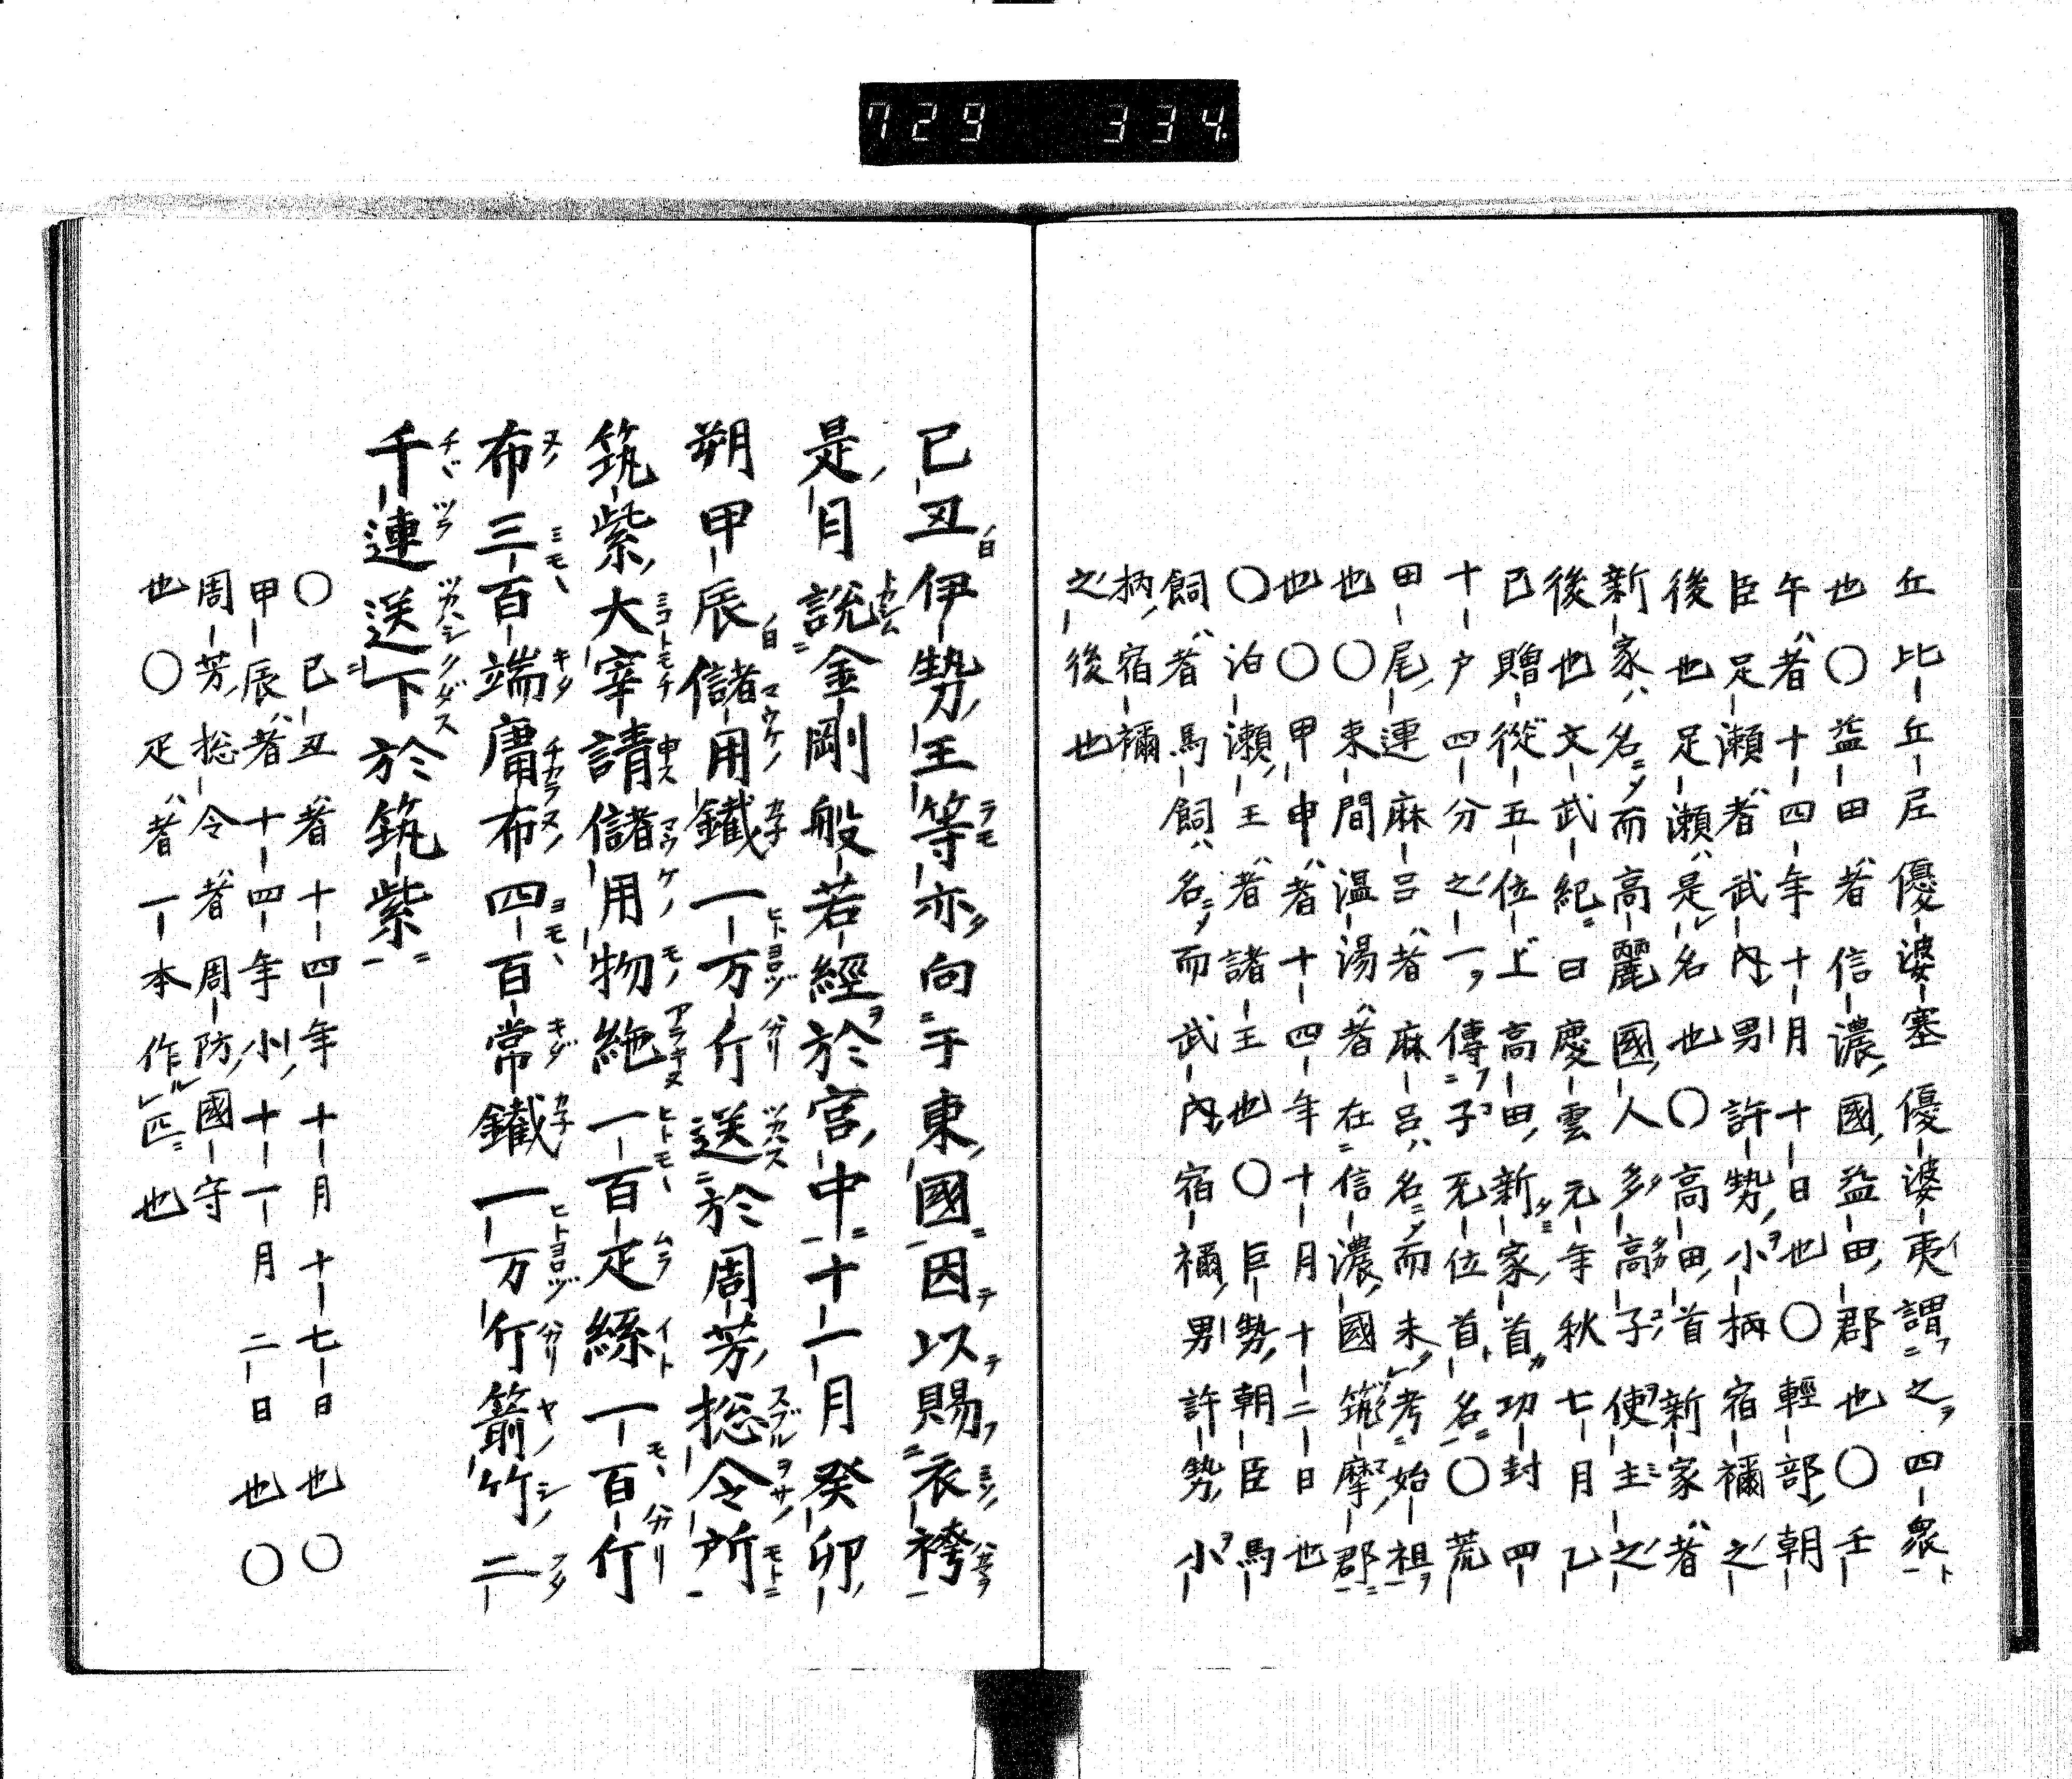 729 334
丘比丘尼優婆塞優婆夷謂之四衆
也〇益田者信濃國益田郡也〇壬
午者十四年十月十日也〇輕部朝
臣足瀬者武內男許勢小柄宿禰之
後也足瀬是名也〇高田首新家者
新家名而高麗國人多高子使主之
後也文武紀曰慶雲元年秋七月乙
已贈從五位上高田新家首功封四
十戶四分之一傳子无位首名〇荒
田尾連麻呂者麻呂名而未考始祖
也〇束間温湯者在信濃國筑摩郡
也〇甲申者十四年十月十二日也
〇泊瀬王者諸王也〇巨勢朝臣馬
飼者馬飼名而武內宿禰男許勢小
柄宿禰
之後也
已丑日伊勢王等亦向于東國因以賜衣袴
是月說金剛般若經於宮中十一月癸卯
朔甲辰儲用鐵一万斤送於周芳総令所
筑紫大宰請儲用物絁一百疋絲一百斤
布三百端庸布四百常鐵一万斤箭竹二
千連送下於筑紫
〇已丑者十四年十月十七日也〇
甲辰者十四年小十一月二日也〇
周芳総令者周防國守
也〇疋者一本作匹也